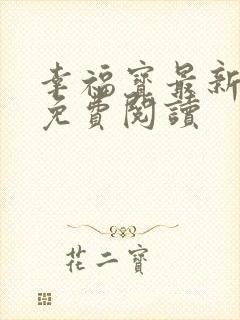 幸福寶最新
免費閱讀
花二寶